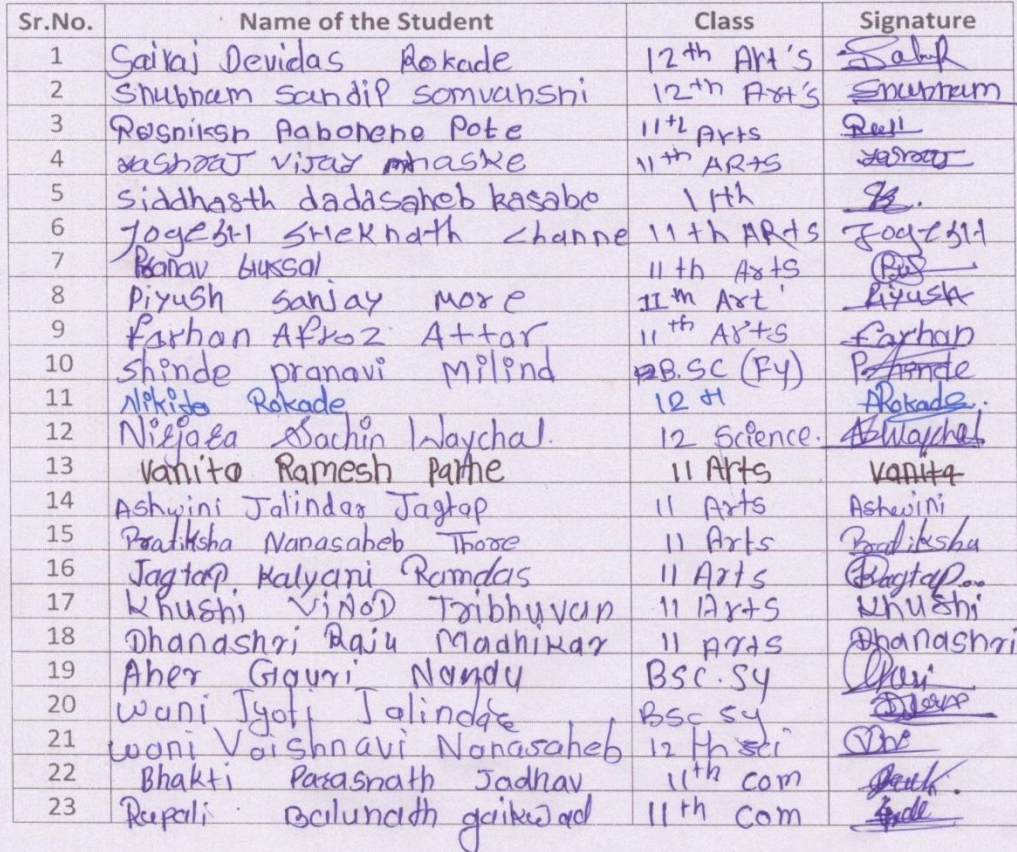 Sr.No. Name of the Student Class Signature
1 Sairaj Devidas Rokade 12th Art's
2 Shubham Sandip Somvanshi 12th Art's Shubham
3 Pote 11th Arts
4 Yashraj Vijay mhaske 11th ARTS
5 Siddhasth dadasaheb kasabe 11th
6 11th ARts
7 Pranav 11th Arts
8 Piyush Sanjay More 11th Art Piyush
9 farhan Afroz Attar 11th Arts farhan
10 Shinde pranavi Milind B.SC (Fy) P.Shinde
11 Nikita Rokade 12th Rokade.
12 Sachin Waychal. 12 Science.
13 Vanita Ramesh Parhe 11 Arts Vanita
14 Ashwini Jalindar Jagtap 11 Arts Ashwini
15 Pratiksha Nanasaheb Thore 11 Arts Pratiksha
16 Jagtap Kalyani Ramdas 11 Arts Jagtap...
17 Khushi ViNOD Tribhuvan 11 Arts Khushi
18 Dhanashri Raju Madhikar 11 Arts Dhanashri
19 Aher Gauri Nandu BSC.Sy
20 Wani Jyoti Jalindar BSc Sy
21 Wani Vaishnavi Nanasaheb 12 th sci
22 Bhakti Parasnath Jadhav 11th com
23 Rupali Balunath gaikwad 11th com